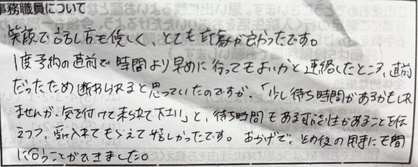 事務職員について
笑顔で話し方も優しく、とても印象が良かったです。
1度予約の直前で時間より早めに行ってもよいかと連絡したところ、直前
だったため断わられると思っていたのですが、「少し待ち時間があるかもしれ
ませんが、気を付けて来られて下さい」と、待ち時間もある可能性があることを伝
えつつ、受け入れてもらえて嬉しかったです。おかげで、その後の用事にも間
に合うことができました。